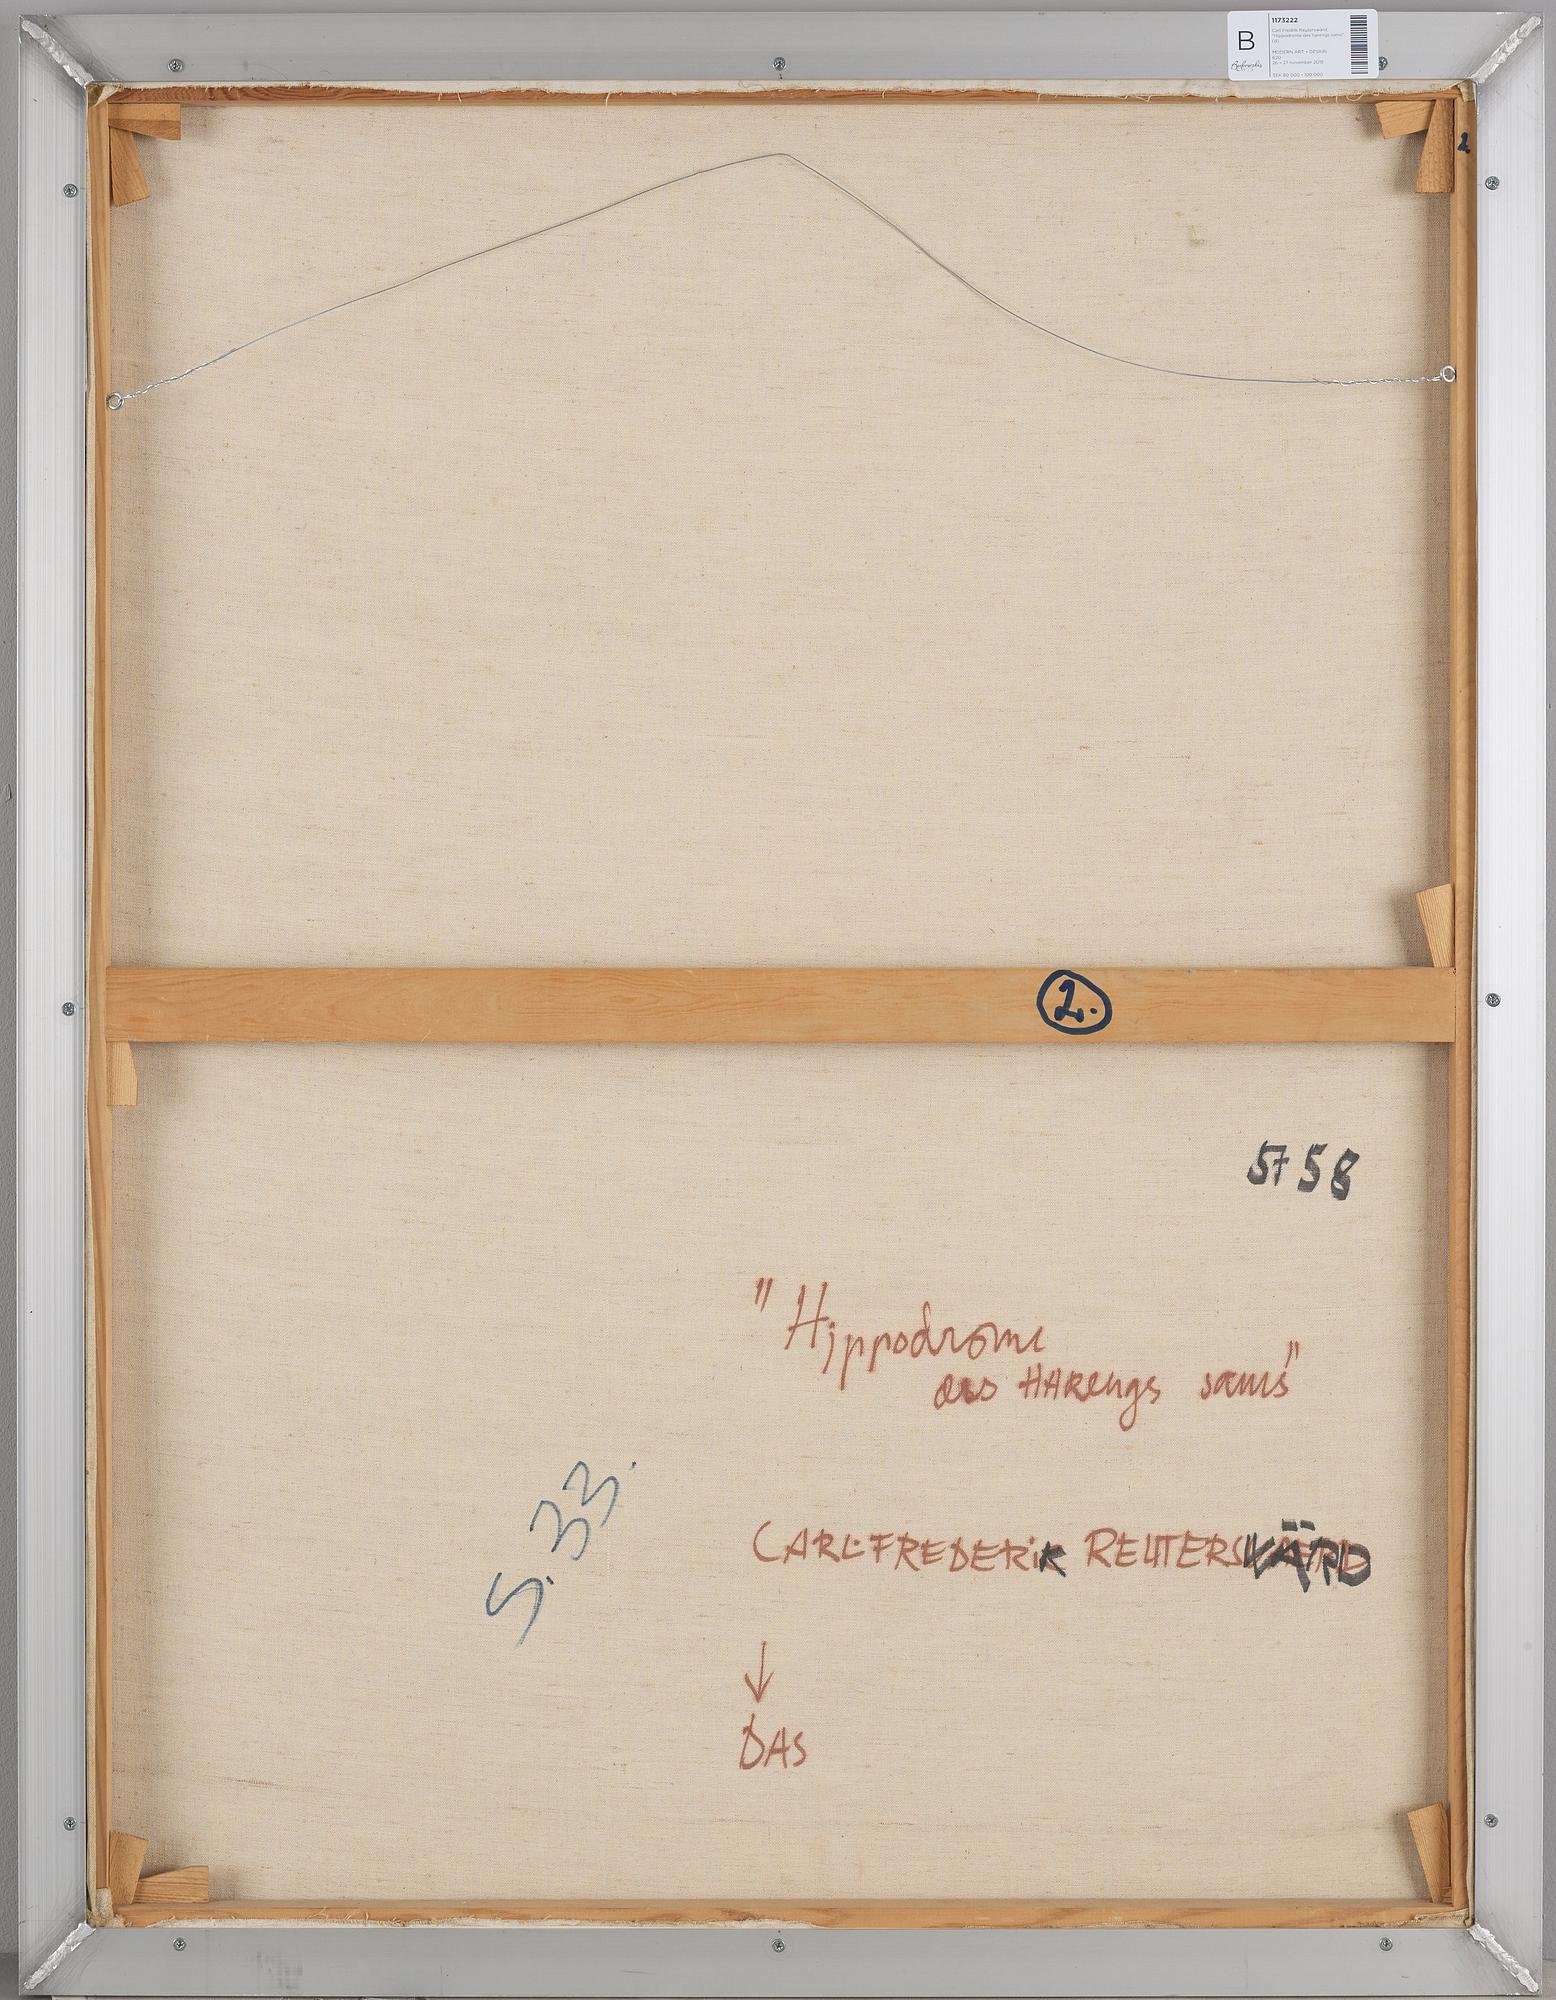 B
1173222
Carl Fredrik Reuterswärd
"Hippodrome des harengs saurs"
MODERN ART + DESIGN
620
26 - 27 november 2019
SEK 80 000 - 100 000
2
2.
5758
"Hippodrome
des HARengs saurs"
S. 33.
CARL-FREDERiK REUTERSWÄRD
↓
DAS